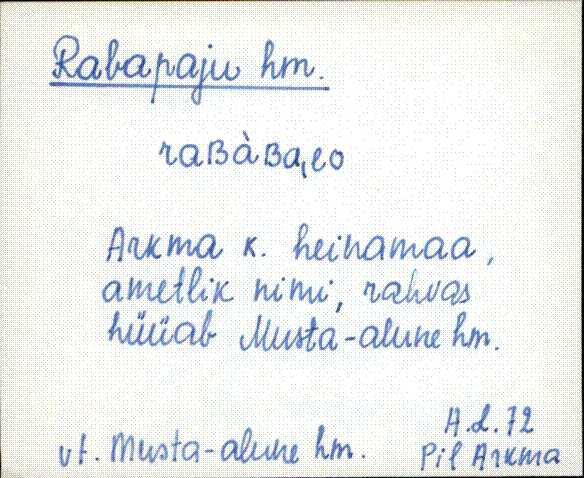 Rabapaju hm.
raʙàʙa,eo
Arkma k. heinamaa,
ametlik nimi, rahvas
hüüab Musta-alune hm.
vt. Musta-alune hm.
A.L.72
Pil Arkma